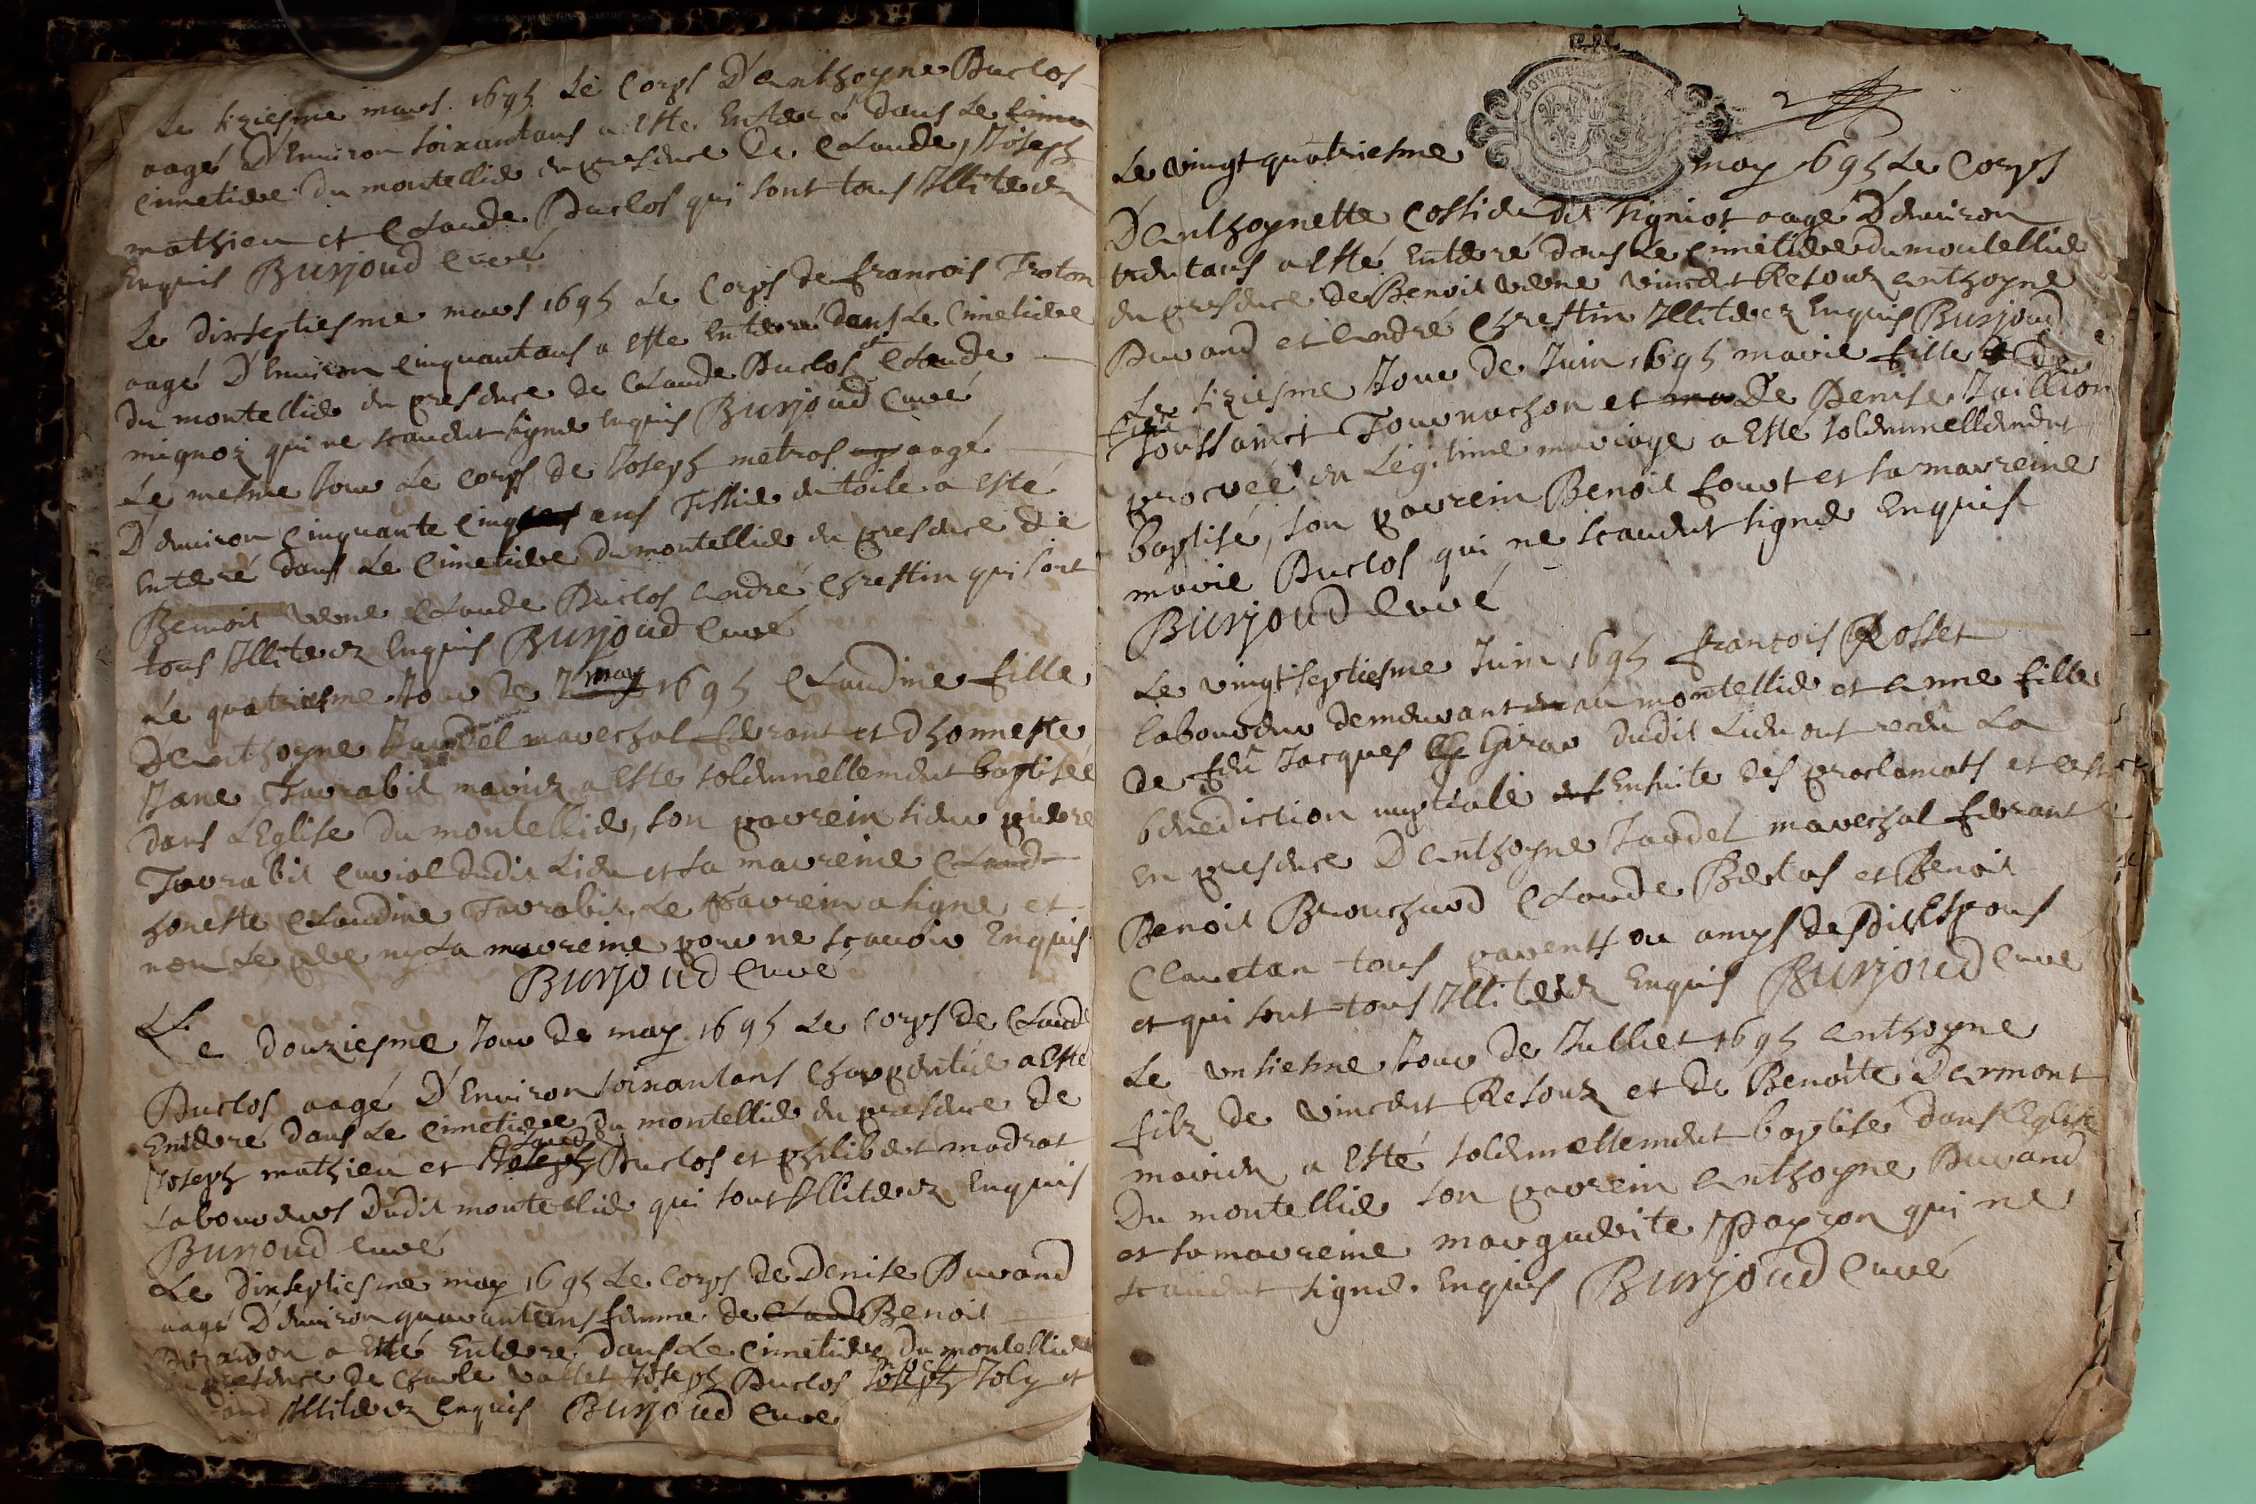 Le siziesme mars 1695 Le Corps D'Anthoyne Duclos
aagé D'Environ soixantans a esté Enterré dans Le
Cimetiere du montellier en presence De Claude, Joseph
mathieu et Claude Duclos qui sont tous Illiterez
Enquis Burjoud Curé
Le dixseptiesme mars 1695 Le Corps de francois Troton
aagé D'Environ Cinquantans a esté Enterré dans Le Cimetiere
Du montellier en presence de Claude Duclos et Claude
mignoz qui ne scaudent signer Enquis Burjoud Curé
Le mesme Jour Le Corps de Joseph metras aagé
D'environ Cinquante Cinq ans Tissier de toile a esté
Enterré dans Le Cimetiere Du montellier en presence de
Benoit verne Claude Duclos André Chrestin qui sont
tous Illiterez Enquis Burjoud Curé
Le quatriesme Jour de may 1695 Claudine fille
De Anthoyne Jaudel mareschal ferrant et d'honneste
Jane Tarrabit mariez a Esté solemnellement baptisée
dans L'Eglise du montellier, son parrein sieur pierre
Tarrabit Curiol dudit Lieu et sa marreine
honeste Claudine Tarrabit, Le parrein a signe et
non Le pere ny La marreine pour ne scavoir Enquis
Burjoud Curé
Le douziesme Jour de may 1695 Le corps de Claude
Duclos aagé D'Environ soixantans charpentier a Esté
Enterré dans Le Cimetiere Du montellier en presence de
Joseph mathieu et Claude Duclos et philibert madrat
Laboureurs Dudit montellier qui sont Illiterez Enquis
Burjoud Curé
Le dixseptiesme may 1695 Le Corps de Denise Durand
aagé D'environ quarantans femme de Benoit
a Esté Enterré dans Le Cimetiere Du montellier
presence de Charle vallet Joseph Duclos Joly et
Illiterez Enquis Burjoud Curé
Le vingt quatriesme may 1695 Le Corps
D'Anthoynette Cossieu dit signiot aagé D'environ
trentans a esté Enterré dans Le Cimetiere du montellier
en presence de Benoit verne vincent Retouz anthoyne
Durand et André Chrestin Illiterez Enquis Burjoud
Curé
Le siziesme Jour de Juin 1695 marie fille de
Toussainct Tournachon et De Denise Jaillion
procréé en Legitime mariage a Esté solemnellement
baptisé, son parrein Benoit fourt et sa marreine
marie Duclos qui ne scaudent signer Enquis
Burjoud Curé
Le vingt septiesme Juin 1695 francois Rosset
laboureur demeurant au montellier et Anne fille
de feu Jacques Girar dudit Lieu ont receu La
benediction nuptiale Ensuite des proclamats et
En presence D'Anthoyne Jaudel mareschal ferrant
Benoit Brouchard Claude Bertas et Benoit
Clavetan tous parents ou amys desdits Espous
et qui sont tous Illiterez Enquis Burjoud Curé
Le unsiesme Jour de Julliet 1695 Anthoyne
filz de vincent Retouz et de Benoite Dermont
mariez a Esté solemnellement baptisé dans L'Eglise
Du montellier son parrein Anthoyne Durand
et sa marreine marguerite Payzon qui ne
scaudent signer Enquis Burjoud Curé